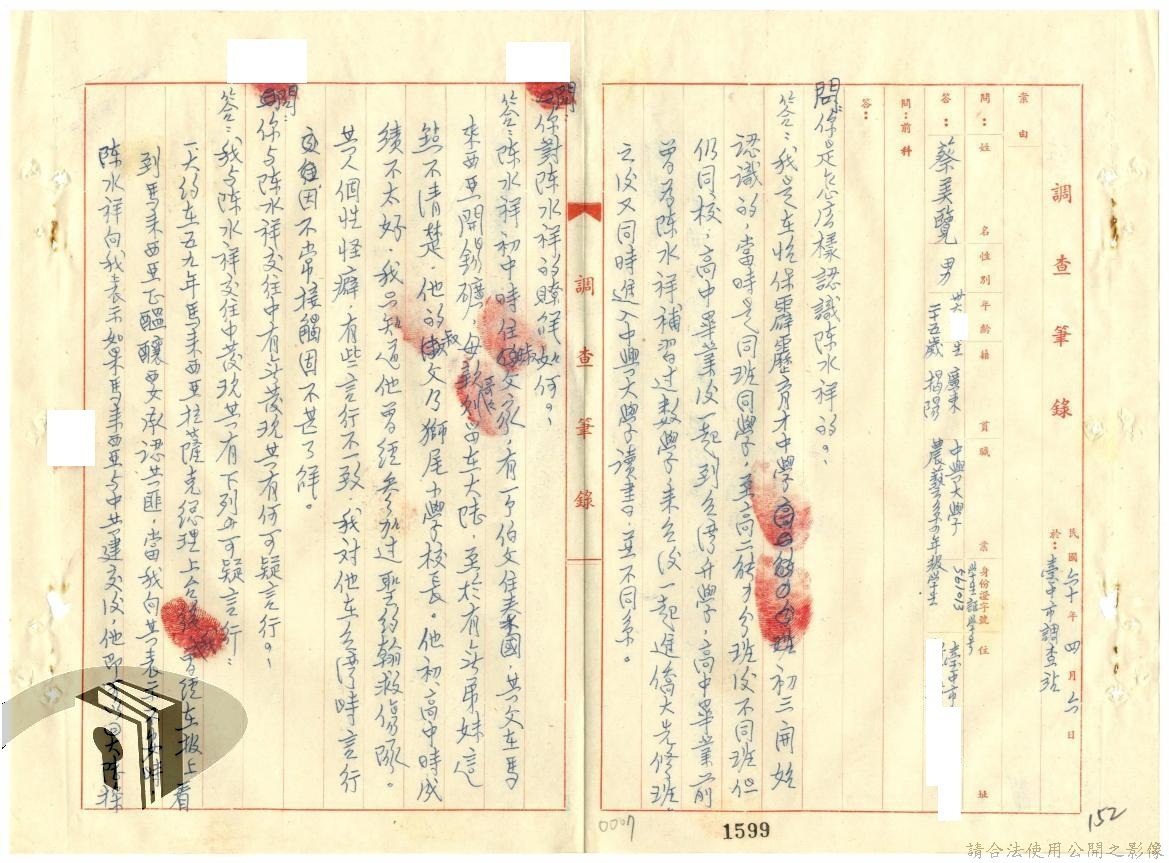 調查筆錄
民國六十年四月六日
於：臺中市調查站
案由
問：姓名性別年齡籍貫職業身份證字號住址
答：蔡美覽 男 廿六 生 二十五歲 廣東揭陽 中興大學農藝系 年級學生 學生證學號591013 臺中市
問：前科
答：
問：你是怎麼樣認識陳水祥的？
答：我是在怡保霹靂育才中學 初三開始
認識的，當時是同班同學，至高二能力分班後不同班但
仍同校，高中畢業後一起到台灣升學，高中畢業前
曾為陳水祥補習過數學，來台後一起進僑大先修班。
之後又同時進入中興大學讀書，並不同系。
調查筆錄
問：你對陳水祥的瞭解如何？
答：陳水祥初中時住 家，有一个伯父住泰國，其父在馬
來西亞開錫礦，母親 留在大陸，至於有無弟妹這
點不清楚，他的 叔父乃獅尾小學校長。他初、高中時成
績不太好，我只知道他曾經參加過聖約翰救傷隊。
其人個性怪癖，有些言行不一致，我對他在台灣時言行
因不常接觸因不甚了解。
問：你与陳水祥交往中有無發現其有何可疑言行？
答：我与陳水祥交往中發現其有下列 可疑言行：
大約在五九年馬來西亞拉薩克總理上台後， 曾經在報上看
到馬來西亞正醞釀要承認共匪，當我向其表示 時
陳水祥向我表示如果馬來西亞与中共建交後，他即可 大陸探
0007
1599
152
請合法使用公開之影像